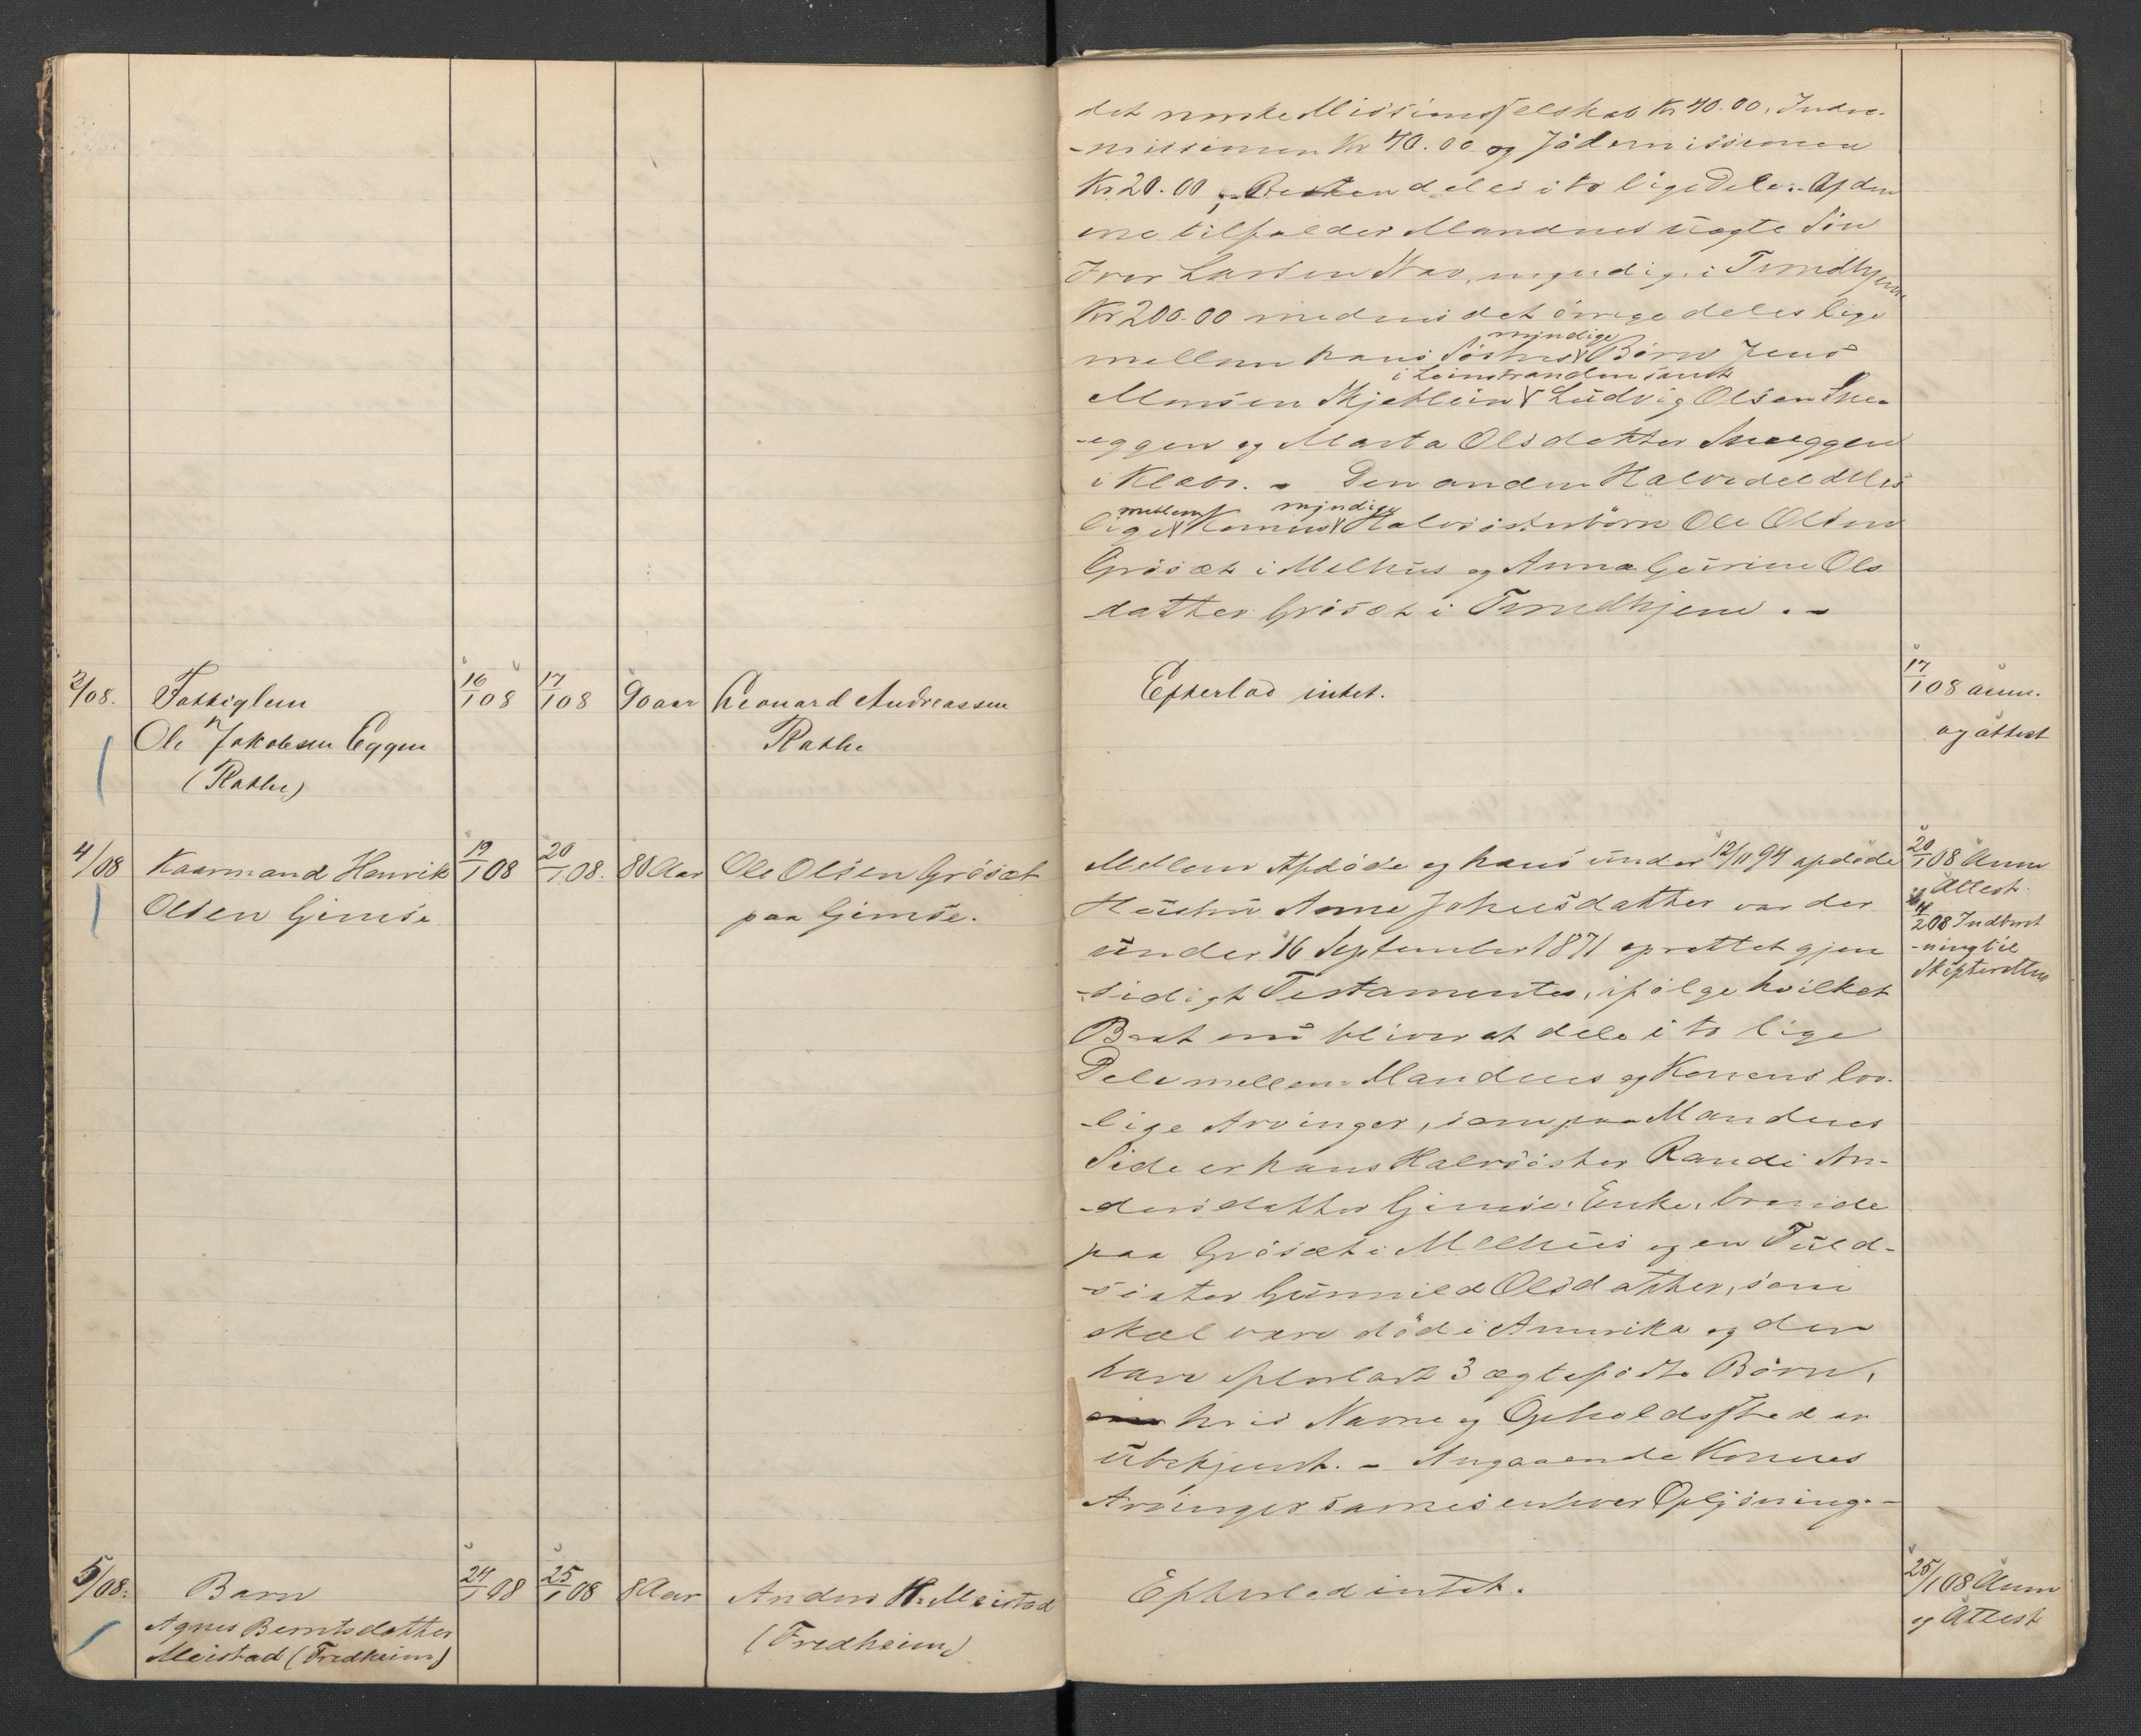 det norske Missionsselskab Kr 40.00, Indre-
-missionen Kr 40.00 og Jödemissionen
Kr 20.00, Resten deles i to lige Dele. - Af den
ene tilfalder Mandens uægte Sön
Iver Larsen, myndig, i Trondhjem
Kr 200.00 medens det övrige deles lige
mellem hans Sösters myndige Börn Jens
Monsen Skjetlein i Leinstranden samt Ludvig Olsen Sne-
-eggen og Marta Olsdatter Sneeggen
i Klæbo. - Den anden Halvdel deles
lige mellem Konens myndige Halvsösterbörn Ole Olsen
Grösæt i Melhus og Anna Gurine Ols
datter Grösæt i Trondhjem. -
3/08. Fattiglem
Ole Jakobsen Eggen
(Rathe)
16/1 08 17/1 08 90 aar Leonard Andreassen
Rathe
Efterlod intet.
17/1 08 anm.
og attest
4/08 Kaarmand Henrik
Olsen Gimse
19/1 08 20/1 08. 80 Aar Ole Olsen Grösæt
paa Gimse.
Mellem Afdöde og hans under 12/11 94 afdöde
Hustru Anne Johnsdatter var der
under 16 September 1871 oprettet gjen
-sidigt Testamente, ifölge hvilket
Boet nu bliver at dele i to lige
Dele mellem Mandens og Konens lov-
-lige Arvinger, som paa Mandens
Side er hans Halvsöster Randi An-
-dersdatter Gimse, Enke, boende
paa Grösæt i Melhus og en Fuld-
-söster Gunnild Olsdatter, som
skal være död i Amerika og der
have efterladt 3 ægtefödte Börn,
hvis Navne og Opholdssted er
übekjendt. - Angaaende Konens
Arvinger savnes enhver Oplysning. -
20/1 08 Anm
og Attest.
4/2 08 Indberet
-ning til
Skifteretten
5/08. Barn
Agnes Berntsdatter
Meistad (Fredheim)
24/1 08 25/1 08 8 Aar Anders H. Meistad
(Fredheim)
Efterlod intet.
25/1 08 Anm
og Attest